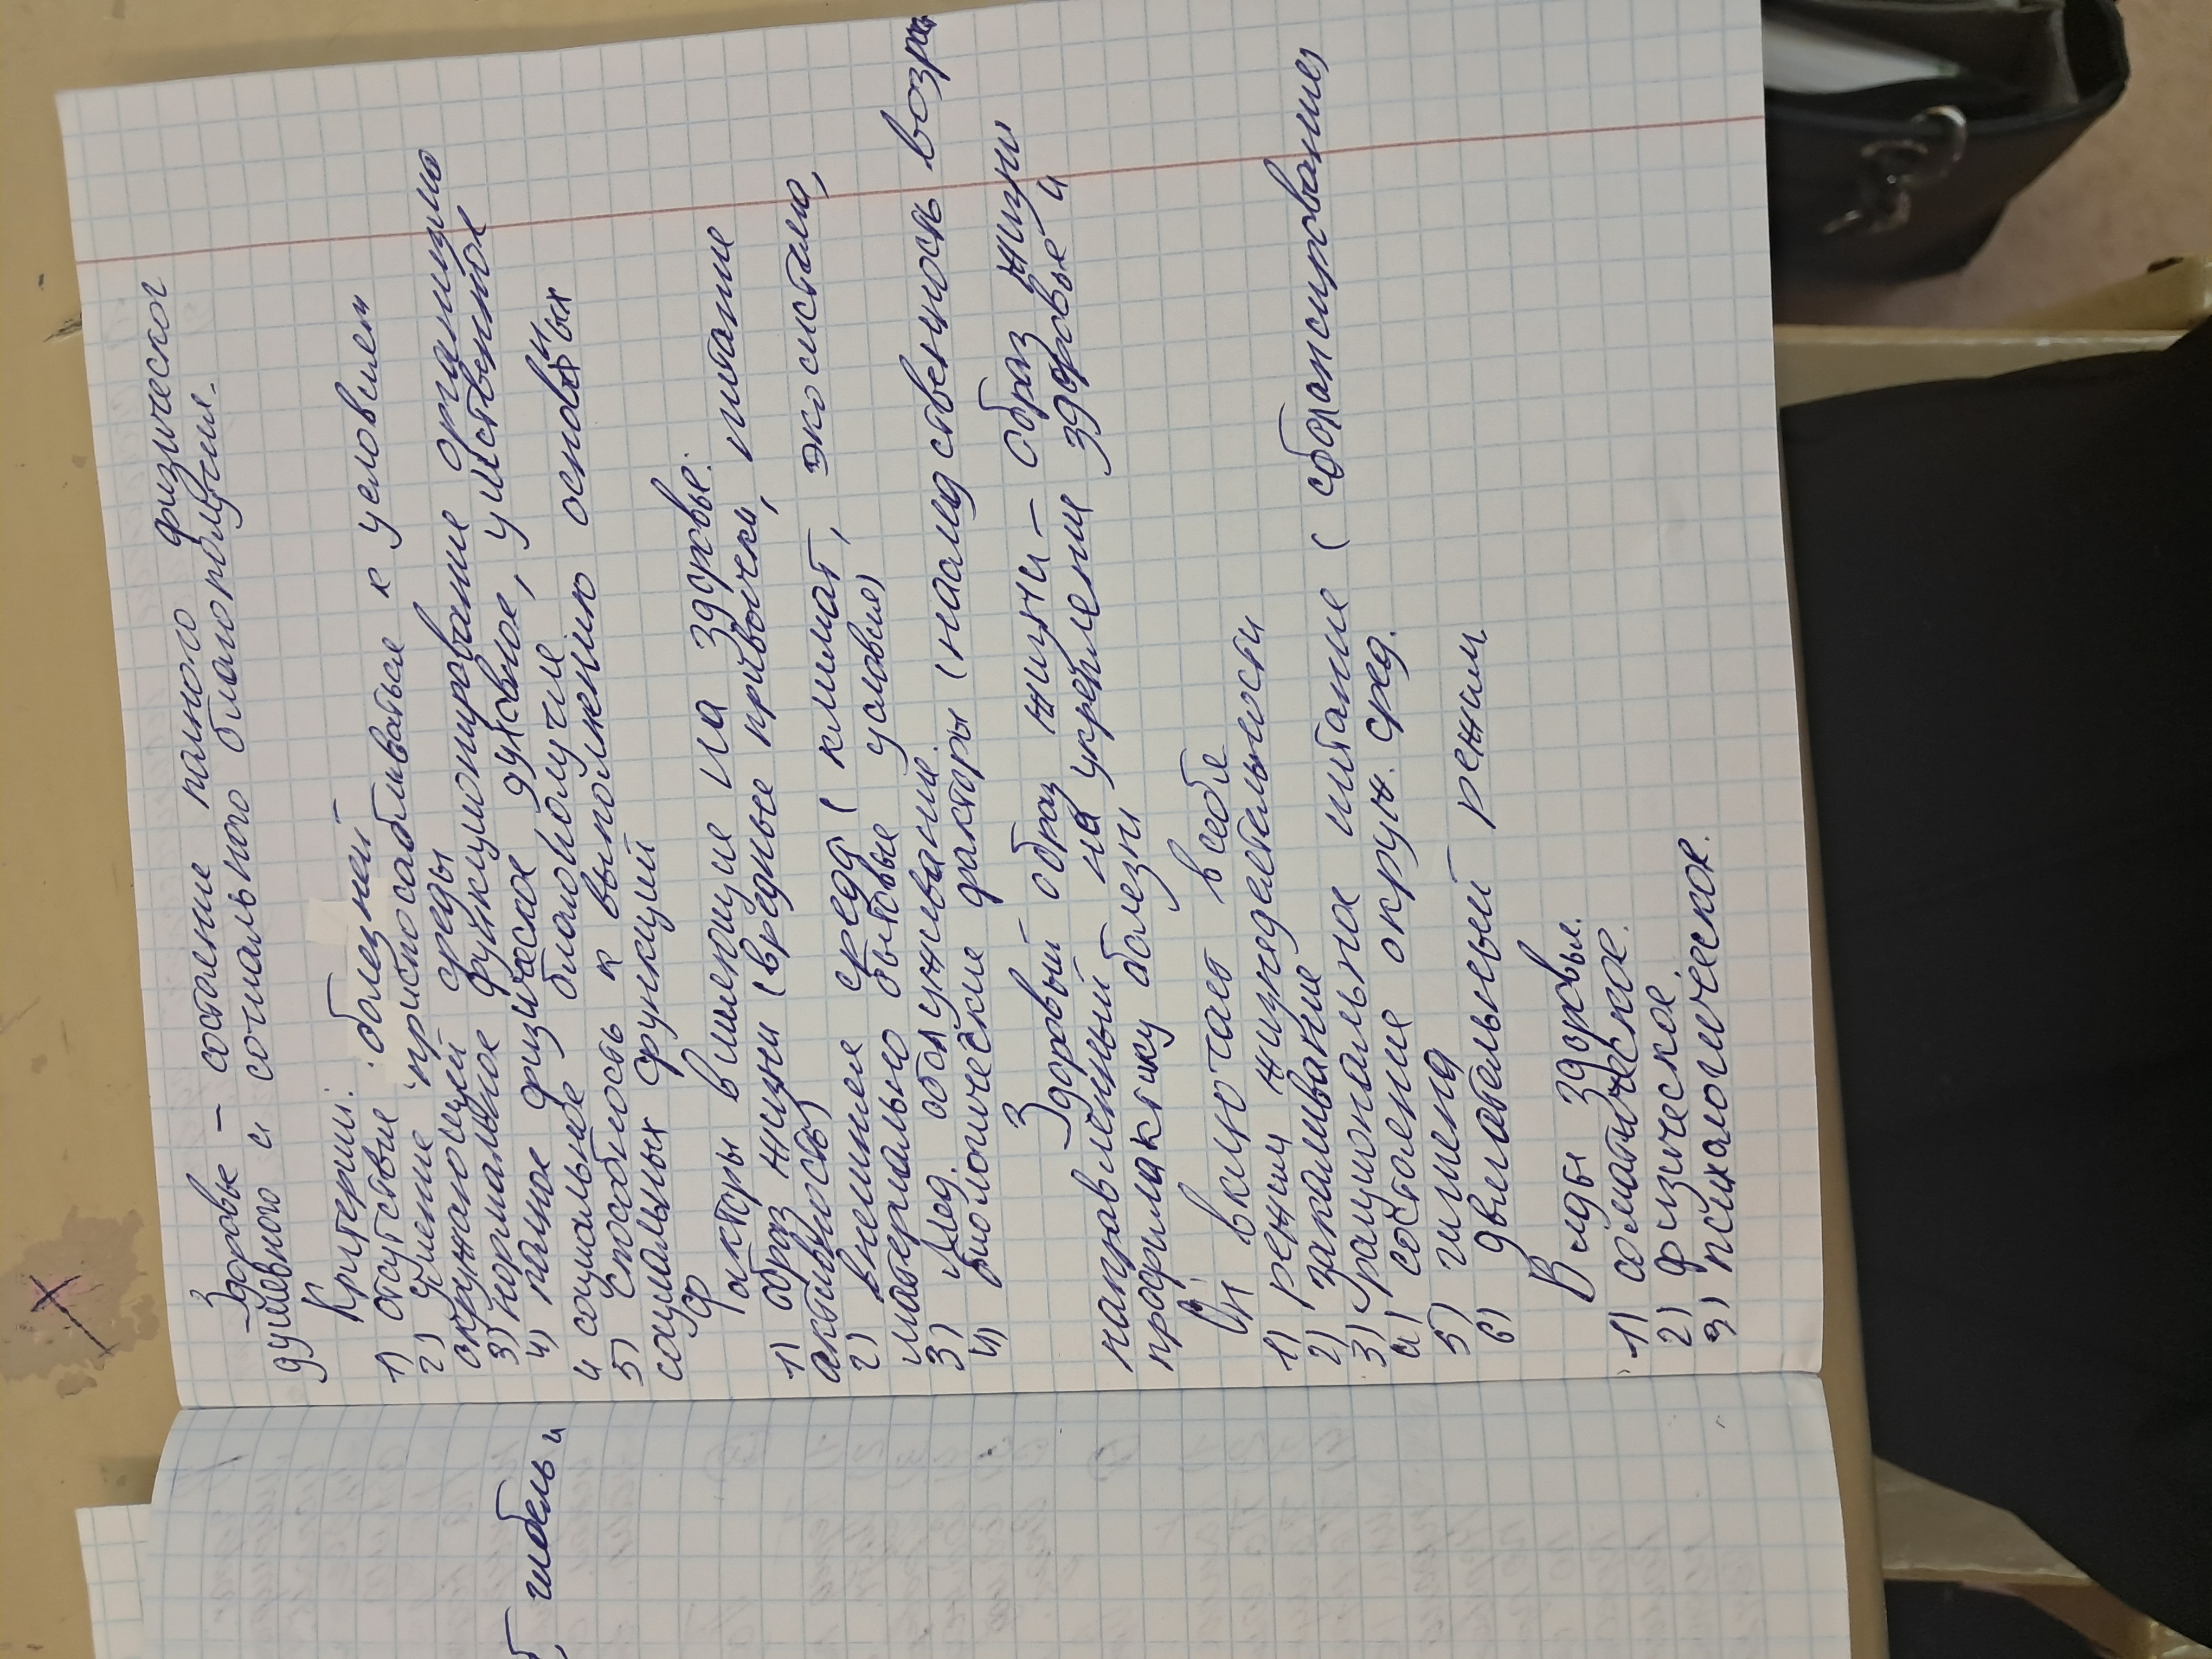 Здоровье – состаение полного физическог
душевного и сочиального благополучие.
Критерии:
1) отсутствие болезней
2) умение приспосабливаться к условием
окружающей среды
3) нормальное функционирование организмо
4) полное физическое духовное, умственное
и социальное благополучие
5) Способность к выполнению основных
социальных функций
Факторы влияющие на здоровье:
1) образ жизни (вредные привычки, питание
активность)
2) внешняя среда ( климат, экосистема,
материально бытовые условия)
3) Мед. обслуживание.
4) биологические факторы (наследственность возра
Здоровый образ жизни – образ жизни
направленный на укрепление здоровье и
профилактику болезни
включает в себя
1) режим жизнедеятельности
2) закаливание
3) рациональное питание ( сбалансирование)
4) состаение окруж. сред.
5) гигиена
6) двигательный режим
Виды здоровья.
1) соматическое.
2) физическое
3) психологическое.
гибель и